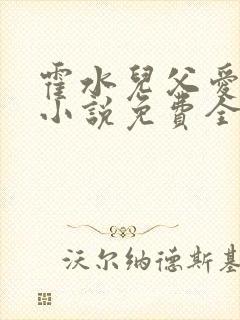 霍水兒父愛
小說免費全
沃尔纳德斯基